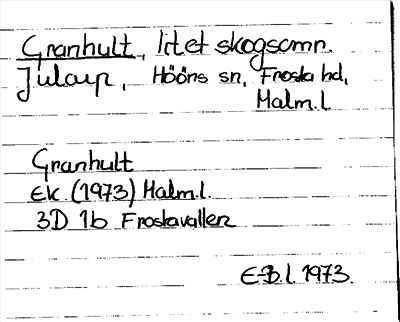 Granhult, litet skogsomr.
Jularp, Hööns sn, Frosta hd,
Malm.l
Granhult
Ek (1973) Malm.l.
3D 1b Frostavallen
E-B.l. 1973.